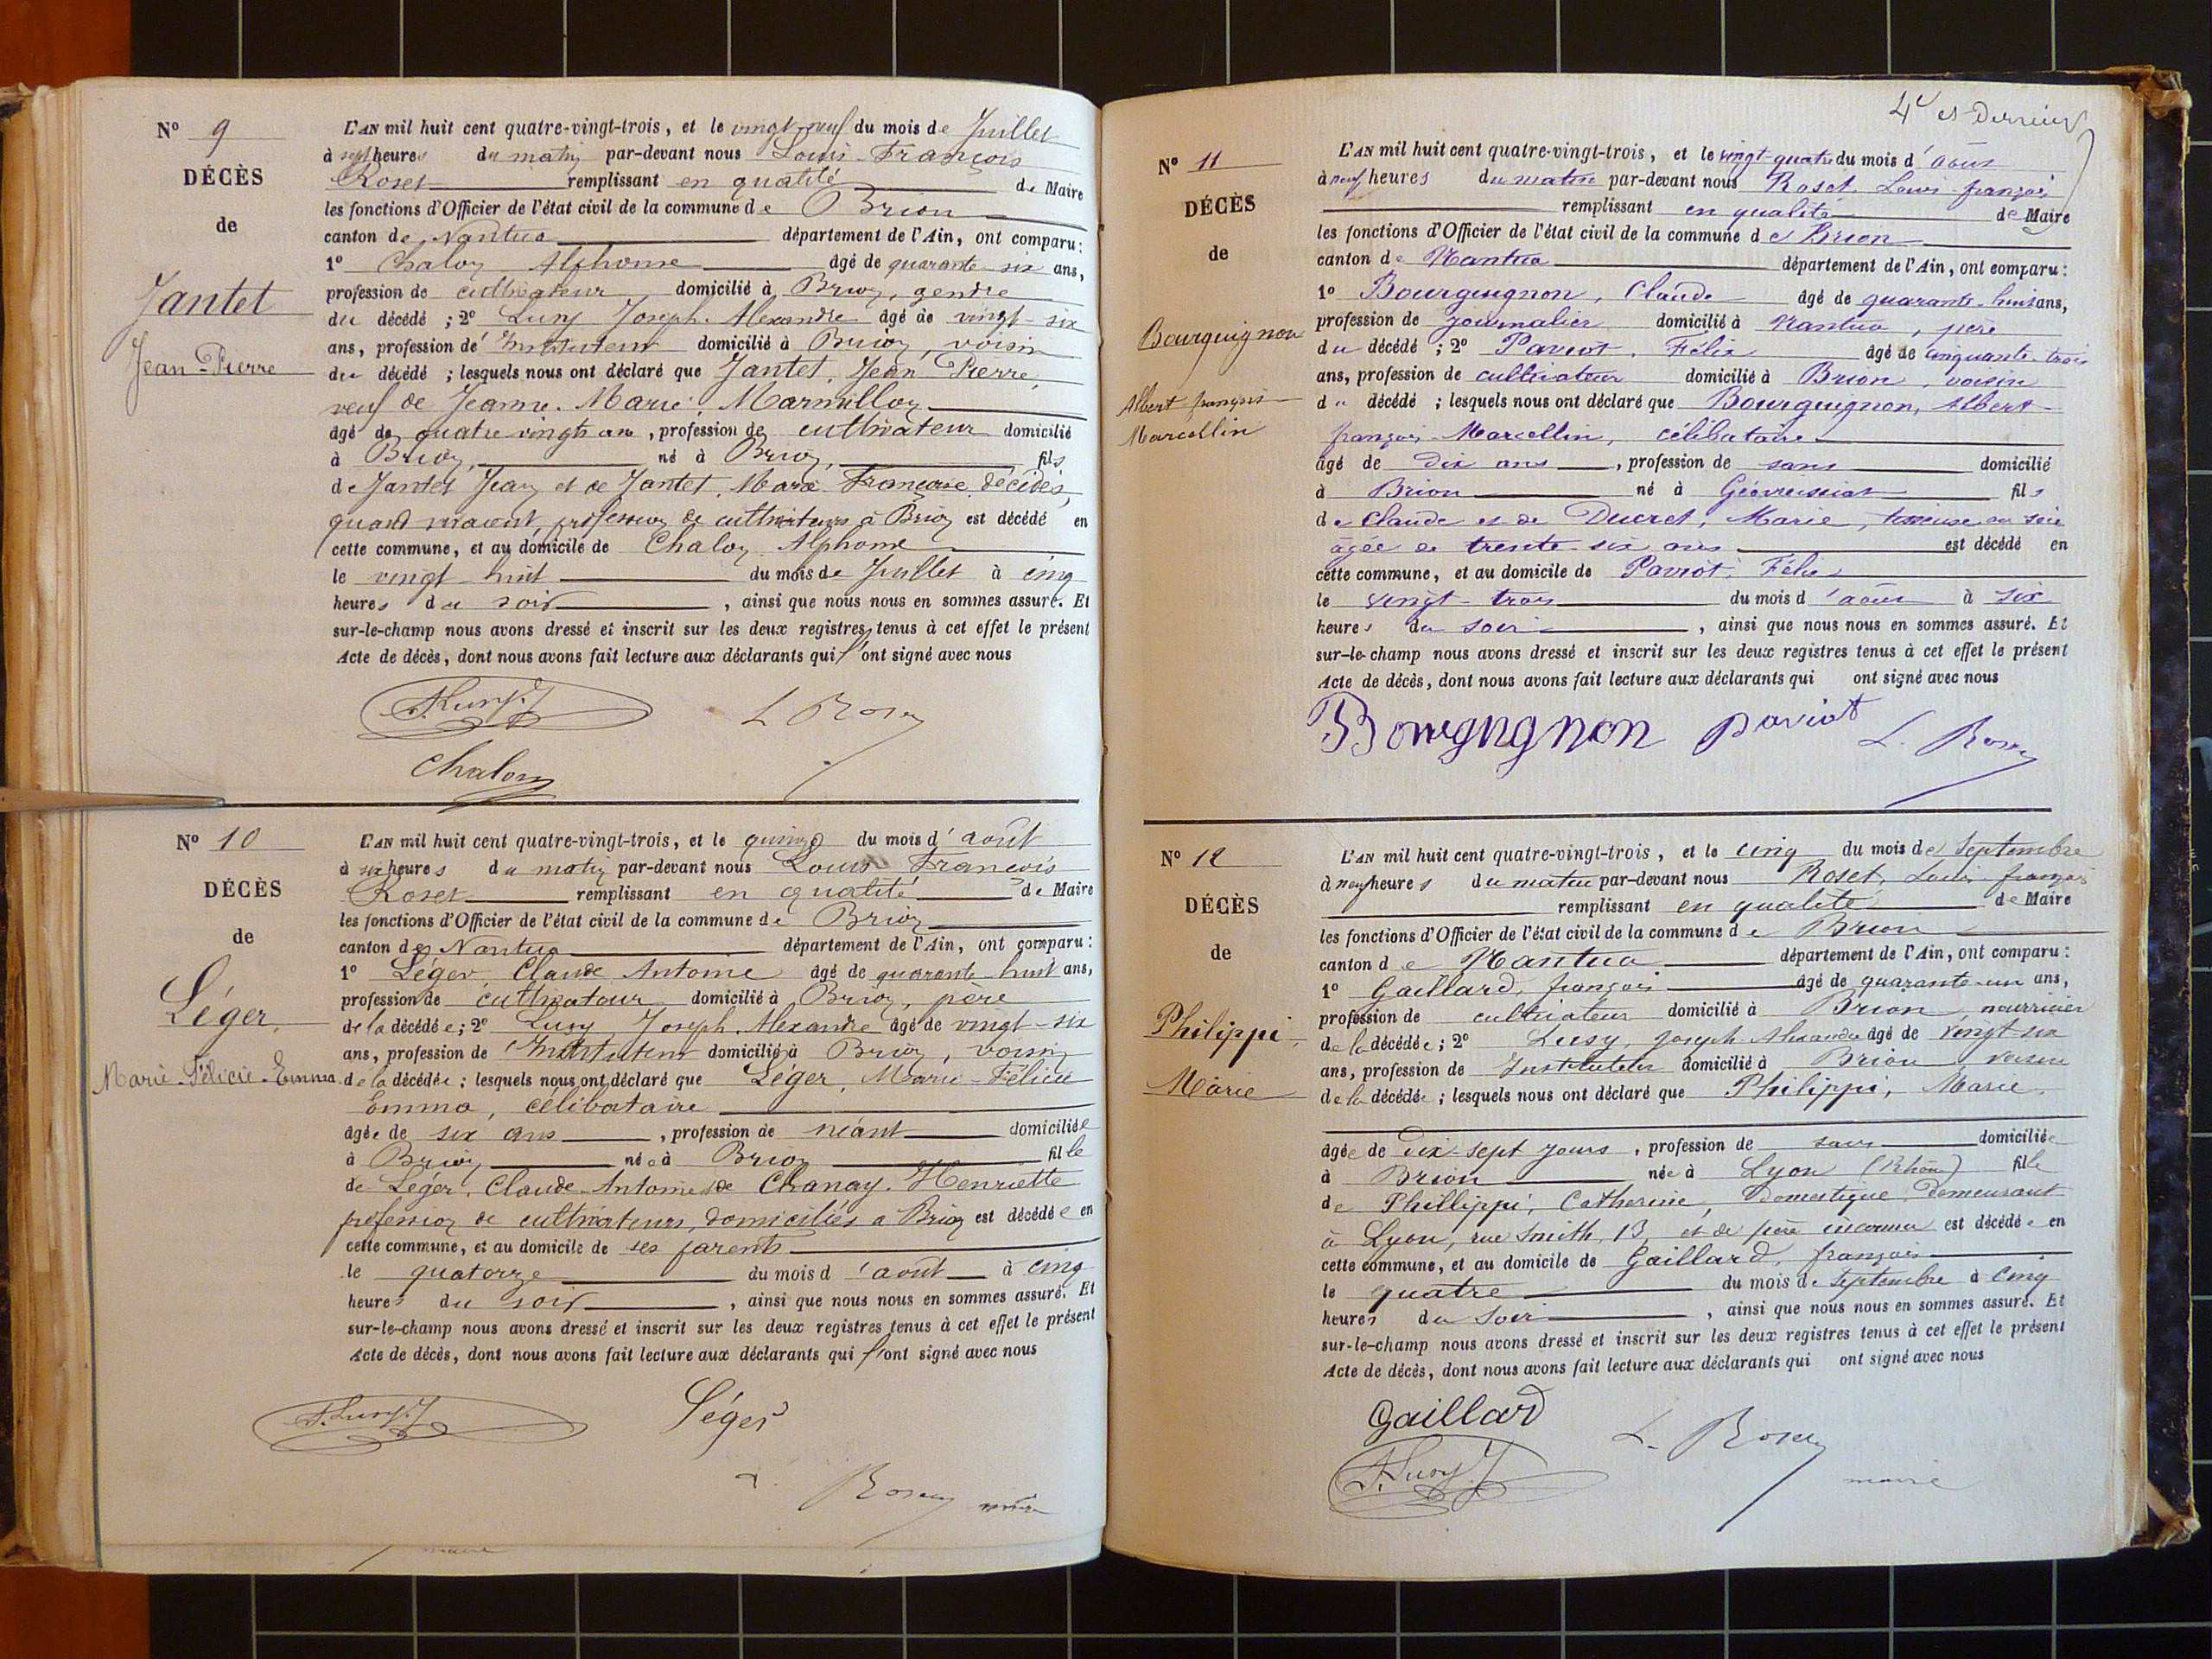 N° 9
DÉCÈS
de
Jantet
Jean-Pierre
L'AN mil huit cent quatre-vingt-trois, et le vingt-neuf du mois de Juillet
à sept heures du matin par-devant nous Louis-François
Roset remplissant en qualité de Maire
les fonctions d'Officier de l'état civil de la commune de Brion
canton de Nantua département de l'Ain, ont comparu :
1° Chalon Alphonse âgé de quarante-six ans,
profession de cultivateur domicilié à Brion, gendre
du décédé ; 2° Lusy Joseph-Alexandre âgé de vingt-six
ans, profession de Instituteur domicilié à Brion, voisin
du décédé ; lesquels nous ont déclaré que Jantet, Jean Pierre,
veuf de Jeanne-Marie Marmillon
âgé de quatre vingts ans, profession de cultivateur domicilié
à Brion, né à Brion, fils
de Jantet Jean et de Jantet, Marie Françoise décédés,
quand vivaient, profession de cultivateurs à Brion est décédé en
cette commune, et au domicile de Chalon Alphonse
le vingt-huit du mois de Juillet à cinq
heures du soir, ainsi que nous nous en sommes assuré. Et
sur-le-champ nous avons dressé et inscrit sur les deux registres tenus à cet effet le présent
Acte de décès, dont nous avons fait lecture aux déclarants qui l'ont signé avec nous
A. Lusy. J
L Roset
Chalon
N° 10
DÉCÈS
de
Léger,
Marie-Félicie-Emma
L'AN mil huit cent quatre-vingt-trois, et le quinze du mois d'août
à six heures du matin par-devant nous Louis-François
Roset remplissant en qualité de Maire
les fonctions d'Officier de l'état civil de la commune de Brion
canton de Nantua département de l'Ain, ont comparu :
1° Léger, Claude Antoine âgé de quarante-huit ans,
profession de cultivateur domicilié à Brion, père
de la décédée ; 2° Lusy Joseph Alexandre âgé de vingt-six
ans, profession de Instituteur domicilié à Brion, voisin
de la décédée ; lesquels nous ont déclaré que Léger, Marie-Félicie
Emma, célibataire
âgée de six ans, profession de néant domiciliée
à Brion née à Brion fille
de Léger, Claude-Antoine et de Chanay, Henriette
profession de cultivateurs, domiciliés à Brion est décédée en
cette commune, et au domicile de ses parents
le quatorze du mois d'août à cinq
heures du soir, ainsi que nous nous en sommes assuré. Et
sur-le-champ nous avons dressé et inscrit sur les deux registres tenus à cet effet le présent
Acte de décès, dont nous avons fait lecture aux déclarants qui l'ont signé avec nous
A. Lusy. J
Léger
L. Roset maire
maire
4e et Dernier
N° 11
DÉCÈS
de
Bourguignon
Albert françois
Marcellin
L'AN mil huit cent quatre-vingt-trois, et le vingt-quatre du mois d'août
à neuf heures du matin par-devant nous Roset Louis françois
remplissant en qualité de Maire
les fonctions d'Officier de l'état civil de la commune de Brion
canton de Nantua département de l'Ain, ont comparu :
1° Bourguignon, Claude âgé de quarante-huit ans,
profession de journalier domicilié à Nantua, père
du décédé ; 2° Paviot, Félix âgé de cinquante-trois
ans, profession de cultivateur domicilié à Brion, voisin
du décédé ; lesquels nous ont déclaré que Bourguignon, Albert-
françois-Marcellin, célibataire
âgé de dix ans, profession de sans domicilié
à Brion né à Géovreissiat fils
de Claude et de Ducret, Marie, tisseuse en soie
âgée de trente-six ans est décédé en
cette commune, et au domicile de Paviot, Félix
le vingt-trois du mois d'août à six
heures du soir, ainsi que nous nous en sommes assuré. Et
sur-le-champ nous avons dressé et inscrit sur les deux registres tenus à cet effet le présent
Acte de décès, dont nous avons fait lecture aux déclarants qui ont signé avec nous
Bourgugnon paviot L. Roset
N° 12
DÉCÈS
de
Philippi,
Marie
L'AN mil huit cent quatre-vingt-trois, et le cinq du mois de Septembre
à neuf heures du matin par-devant nous Roset, Louis-françois
remplissant en qualité de Maire
les fonctions d'Officier de l'état civil de la commune de Brion
canton de Nantua département de l'Ain, ont comparu :
1° Gaillard, françois âgé de quarante-un ans,
profession de cultivateur domicilié à Brion, nourricier
de la décédée ; 2° Lusy, Joseph-Alexandre âgé de vingt-six
ans, profession de Instituteur domicilié à Brion, voisin
de la décédée ; lesquels nous ont déclaré que Philippi, Marie,
âgée de dix-sept jours, profession de sans domiciliée
à Brion née à Lyon (Rhône) fille
de Phillippi, Catherine, domestique, demeurant
à Lyon, rue Smith, 13, et de père inconnu est décédée en
cette commune, et au domicile de Gaillard, françois
le quatre du mois de Septembre à cinq
heures du soir, ainsi que nous nous en sommes assuré. Et
sur-le-champ nous avons dressé et inscrit sur les deux registres tenus à cet effet le présent
Acte de décès, dont nous avons fait lecture aux déclarants qui ont signé avec nous
Gaillard
L. Roset
A. Lusy. J
maire